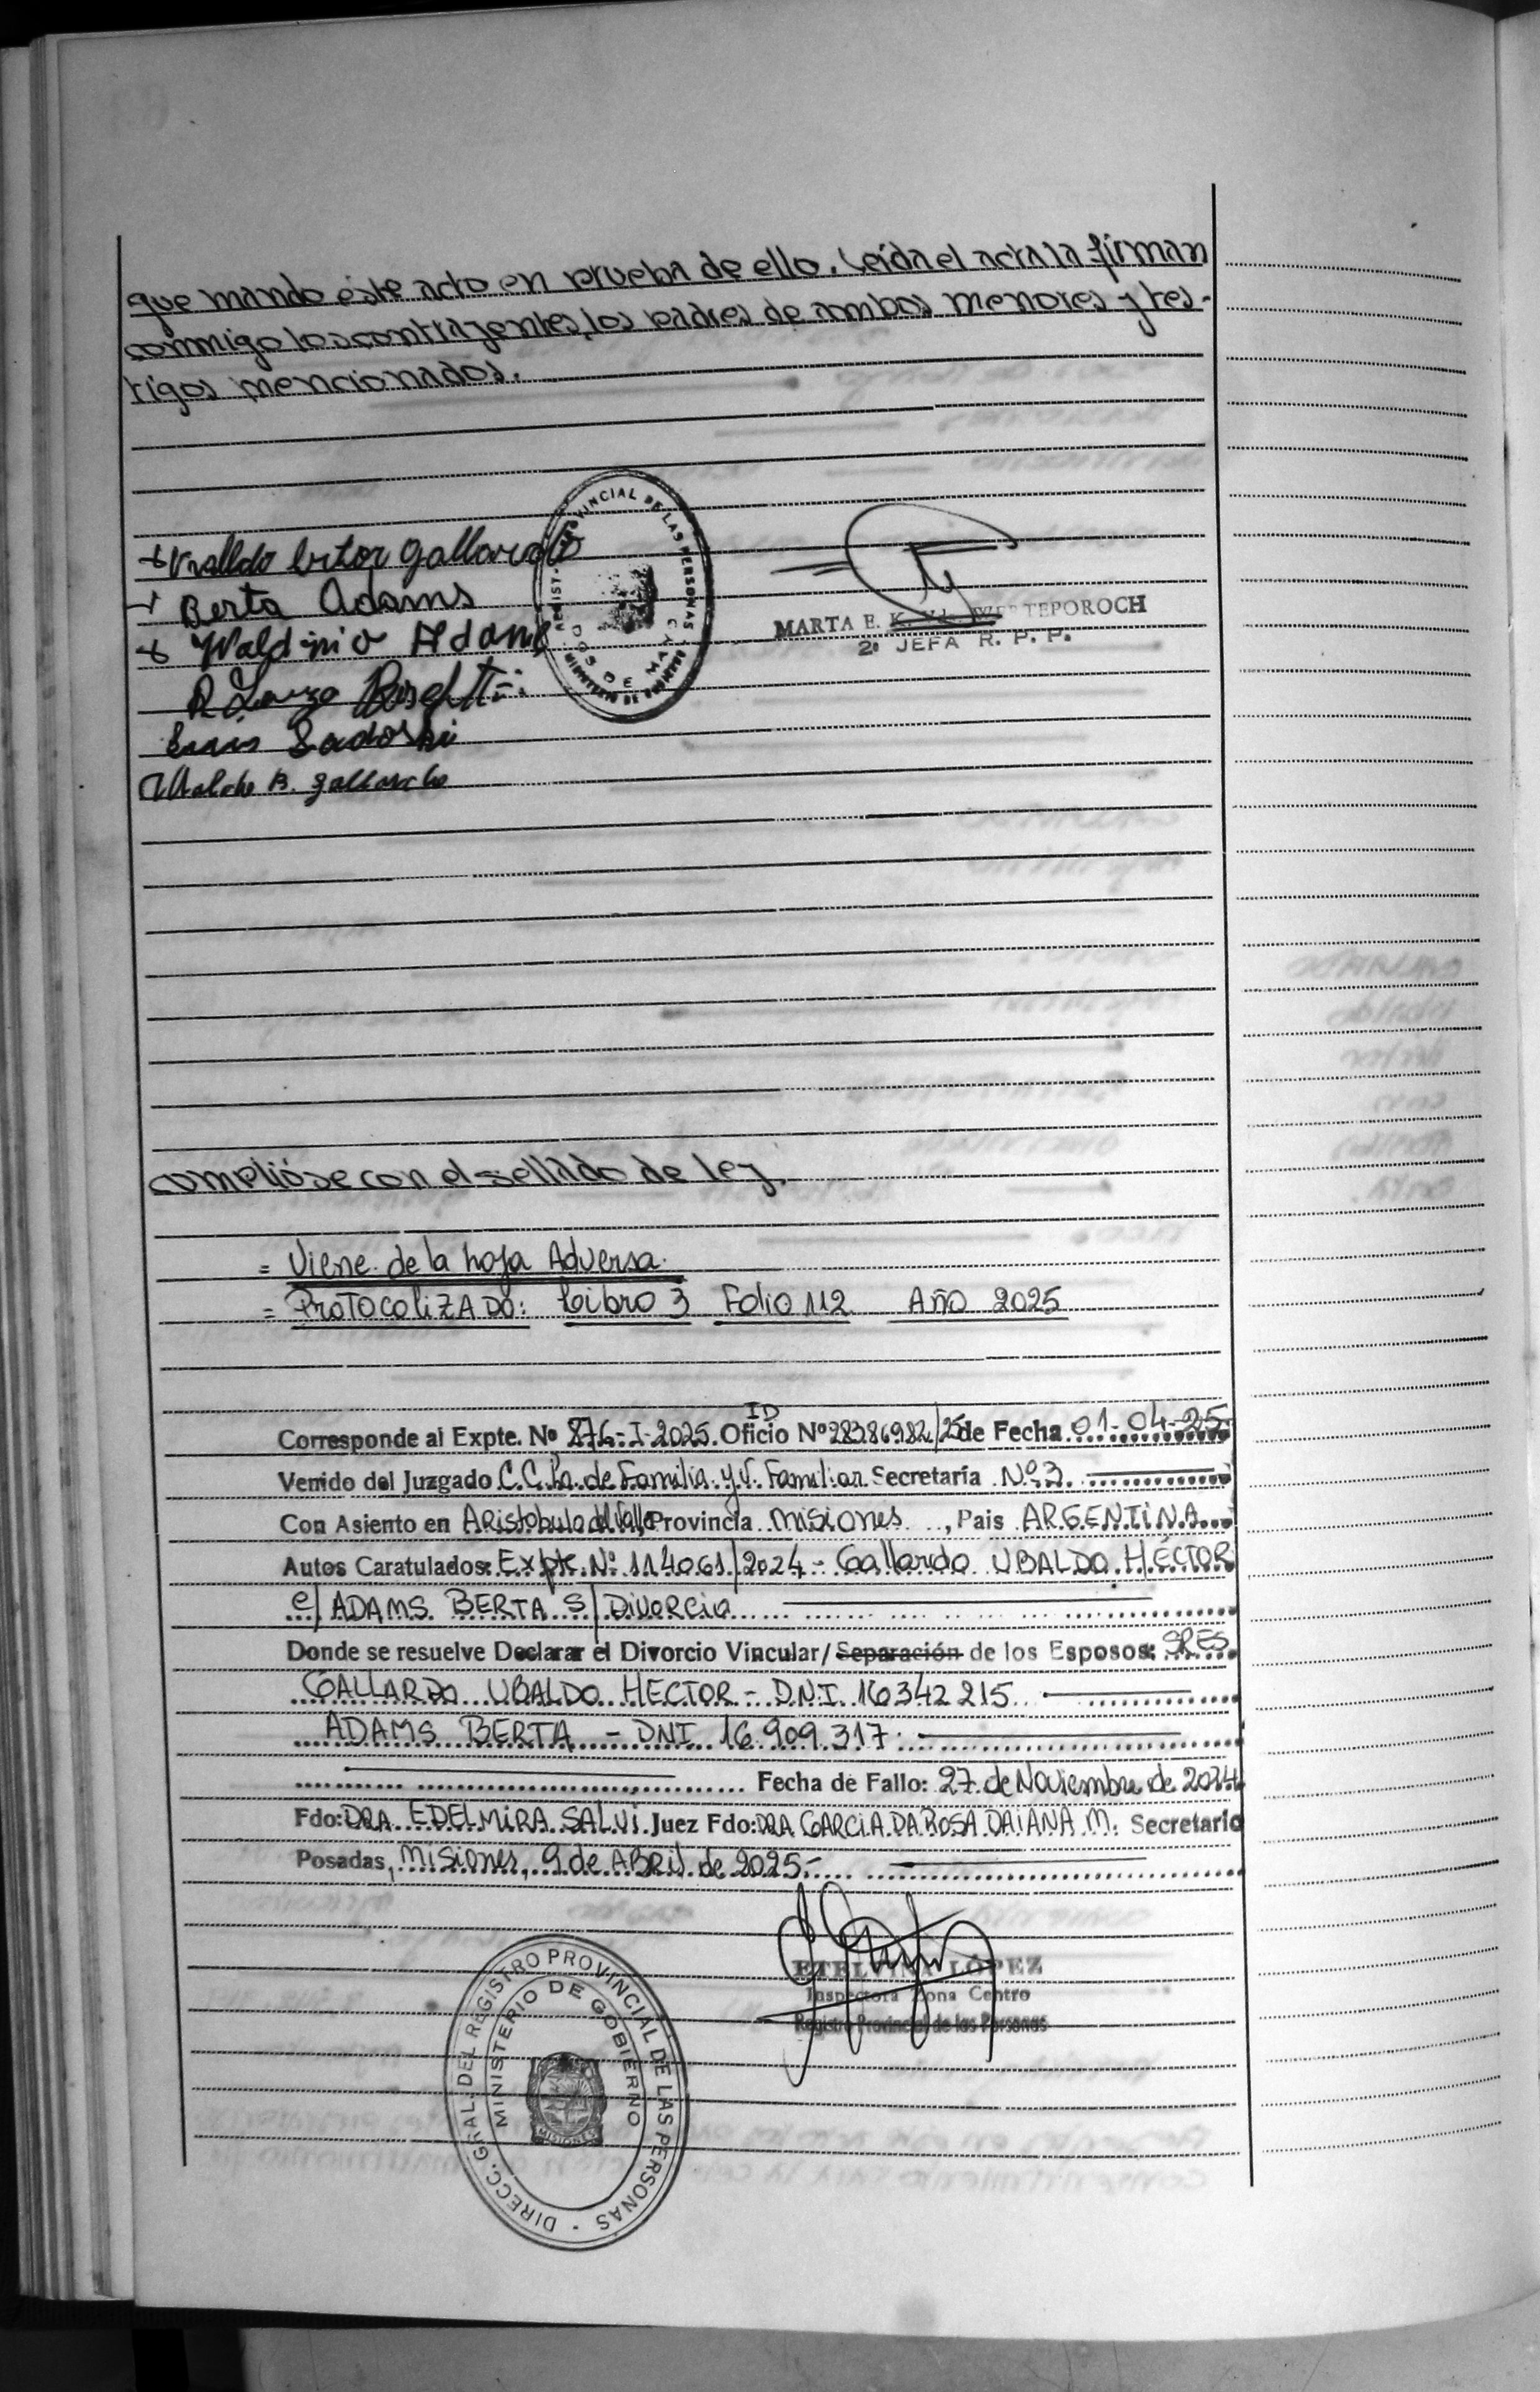 que mando éste acto en prueba de ello. Leída el acta la firman
conmigo los contrayentes, los padres de ambos menores y tes-
tigos mencionados.
Ector Gallardo
Berta Adams
Waldino Adams
Luis Sadoski
B. Gallardo
VINCIAL DE LAS PERSONAS
DOS DE MAYO
MINISTERIO DE GOBIERNO
MARTA E. TEPOROCH
2º JEFA R. P. P.
cumplióse con el sellado de ley.
= Viene de la hoja Adversa.
= PROTOCOLIZADO: Libro 3 Folio 112 Año 2025
ID
Corresponde al Expte. Nº 876-I-2025. Oficio Nº 28386982/25 de Fecha 01-04-25
Venido del Juzgado C.C.La. de Familia y V. Familiar Secretaría Nº 3.
Con Asiento en Aristobulo del Valle Provincia Misiones, Pais ARGENTINA
Autos Caratulados: Expte. Nº 114061/2024 - Gallardo UBALDO HÉCTOR
c/ ADAMS BERTA S/ Divorcio
Donde se resuelve Declarar el Divorcio Vincular/Separación de los Esposos: SRES.
GALLARDO UBALDO HECTOR - DNI 16342215.
ADAMS BERTA - DNI 16.909.317.
Fecha de Fallo: 27 de Noviembre de 2024
Fdo: DRA. EDELMIRA SALVI Juez Fdo: DRA GARCIA DA ROSA DAIANA M. Secretario
Posadas, Misiones, 9 de ABRil de 2025.-
ETELVINA LÓPEZ
Inspectora Zona Centro
Registro Provincial de las Personas
DIRECC. GRAL. DEL REGISTRO PROVINCIAL DE LAS PERSONAS
MINISTERIO DE GOBIERNO
MISIONES